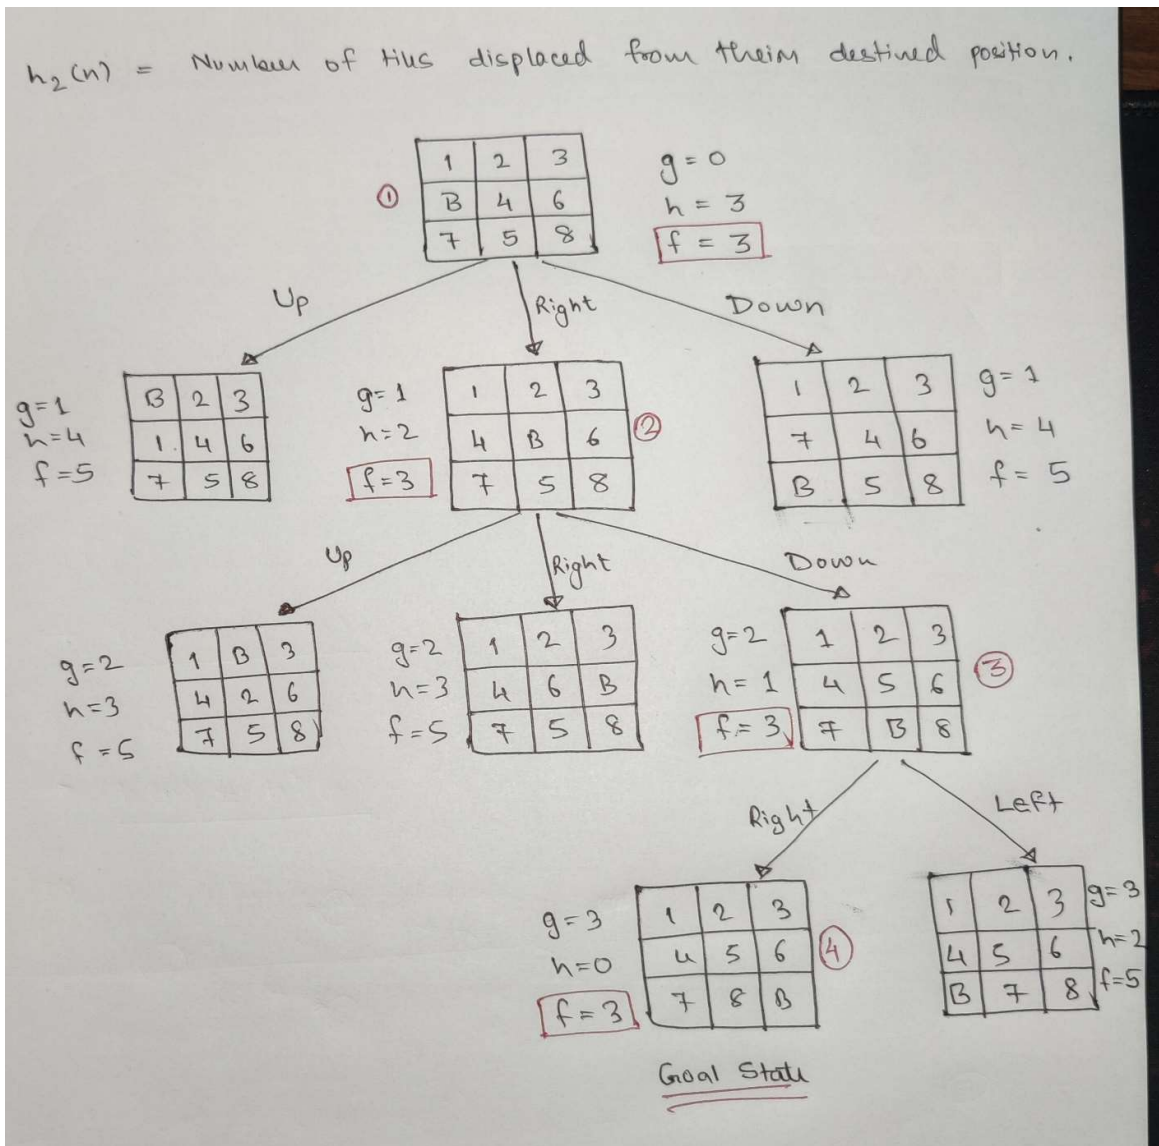 h₂(n) = Number of tiles displaced from their destined position.
1 2 3
① B 4 6
7 5 8
g = 0
h = 3
f = 3
Up
Right
Down
g=1
h=4
f=5
B 2 3
1 4 6
7 5 8
g=1
h=2
f=3
1 2 3
4 B 6
7 5 8
②
1 2 3
7 4 6
B 5 8
g=1
h=4
f= 5
Up
Right
Down
g=2
h=3
f=5
1 B 3
4 2 6
7 5 8
g=2
h=3
f=5
1 2 3
4 6 B
7 5 8
g=2
h=1
f=3
1 2 3
4 5 6
7 B 8
③
Right
Left
g=3
h=0
f=3
1 2 3
4 5 6
7 8 B
④
1 2 3
4 5 6
B 7 8
g=3
h=2
f=5
Goal State